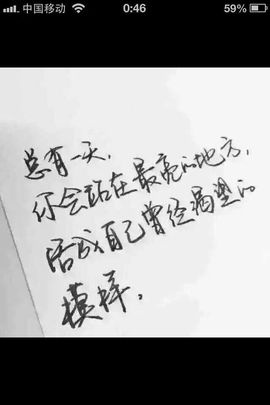 中国移动 0:46 59%
总有一天，
你会站在最亮的地方，
活成自己曾经渴望的
模样。